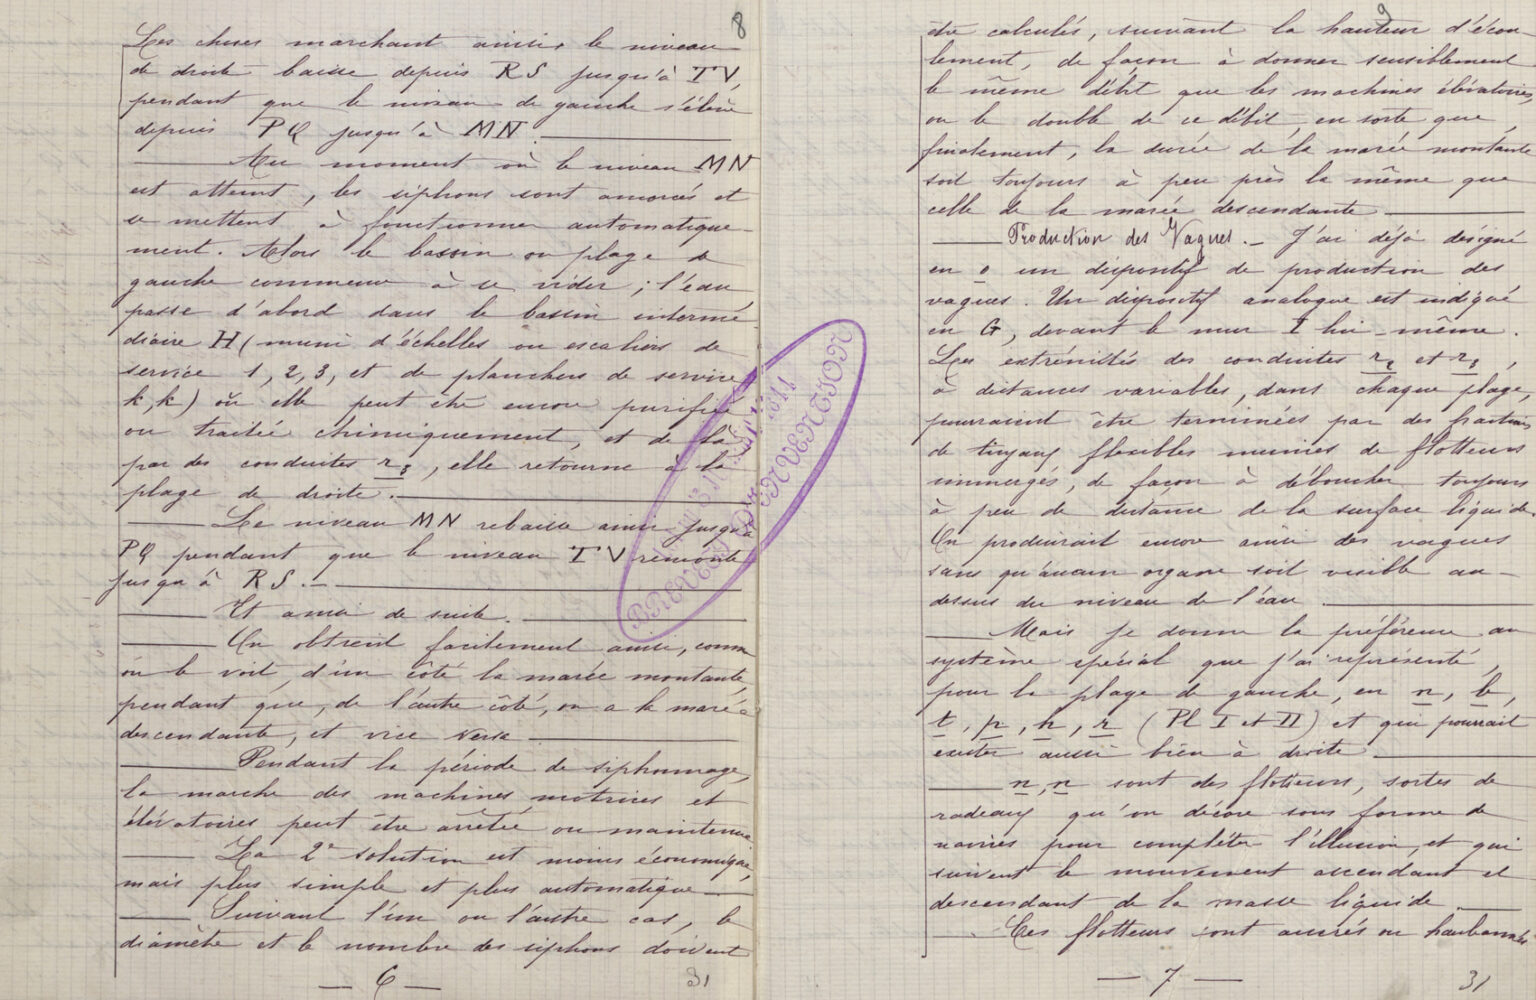 8
Les choses marchant ainsi, le niveau
de droite baisse depuis RS jusqu'à TV,
pendant que le niveau de gauche s'élève
depuis PQ jusqu'à MN.
Au moment où le niveau MN
est atteint, les siphons sont amorcés et
se mettent à fonctionner automatique-
ment. Alors le bassin ou plage de
gauche commence à se vider ; l'eau
passe d'abord dans le bassin intermé-
diaire H (muni d'échelles ou escaliers de
service 1, 2, 3, et de planchers de service
k, k) où elle peut être encore purifiée
ou traitée chimiquement, et de là
par des conduites r3, elle retourne à la
plage de droite.
Le niveau MN rebaisse ainsi jusqu'à
PQ pendant que le niveau TV remonte
jusqu'à RS.
Et ainsi de suite.
On obtient facilement ainsi, comme
on le voit, d'un côté la marée montante,
pendant que, de l'autre côté, on a la marée
descendante, et vice versa
Pendant la période de siphonnage,
la marche des machines motrices et
élévatoires peut être arrêtée ou maintenue.
La 2e solution est moins économique,
mais plus simple et plus automatique
Suivant l'un ou l'autre cas, le
diamètre et le nombre des siphons doivent
6
31
BREVET D'INVENTION
9
être calculés, suivant la hauteur d'écou-
lement, de façon à donner sensiblement
le même débit que les machines élévatoires,
ou le double de ce débit, en sorte que,
finalement, la durée de la marée montante
soit toujours à peu près la même que
celle de la marée descendante
Production des Vagues. _ J'ai déjà désigné
en o un dispositif de production des
vagues. Un dispositif analogue est indiqué
en G, devant le mur I lui-même.
Les extrémités des conduites r2 et r3,
à distances variables, dans chaque plage,
pourraient être terminées par des fractions
de tuyaux flexibles munies de flotteurs
immergés, de façon à déboucher toujours
à peu de distance de la surface liquide.
On produirait encore ainsi des vagues
sans qu'aucun organe soit visible au-
dessus du niveau de l'eau
Mais je donne la préférence au
système spécial que j'ai représenté,
pour la plage de gauche, en n, b,
t, p, h, r (Pl I et II) et qui pourrait
exister aussi bien à droite
n, n sont des flotteurs, sortes de
radeaux qu'on décore sous forme de
navires pour compléter l'illusion, et qui
suivent le mouvement ascendant et
descendant de la masse liquide.
Ces flotteurs sont ancrés ou haubannés
7
31